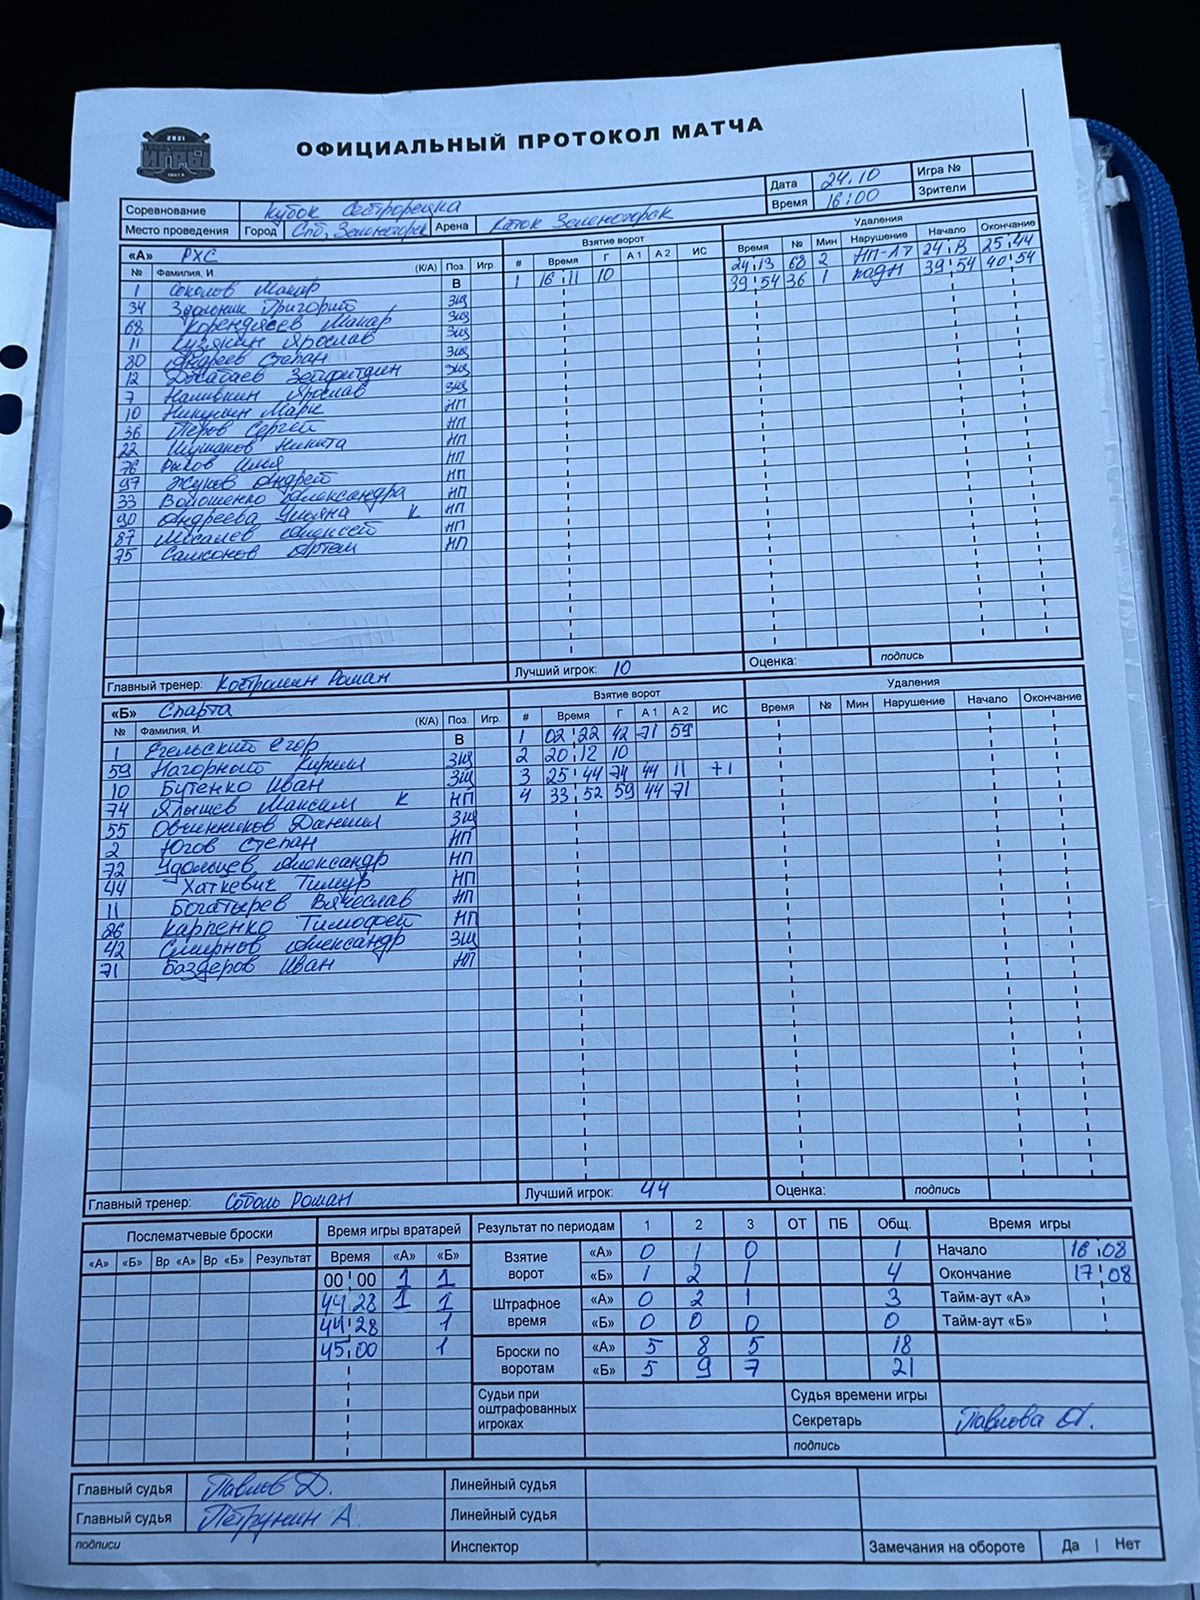 2021
ИГРЫ
ОФИЦИАЛЬНЫЙ ПРОТОКОЛ МАТЧА
Соревнование Кубок Сестрорецка Дата 24.10 Игра №
Место проведения Город Спб, Зеленогорск Арена Каток Зеленогорск Время 16:00 Зрители
«А» РХС Взятие ворот Удаления
№ Фамилия, И. (К/А) Поз. Игр # Время Г А1 А2 ИС Время № Мин Нарушение Начало Окончание
1 Соколов Макар В 1 16:11 10 24:13 68 2 24:13 25:44
34 Григорий Зщ 39:54 36 1 39:54 40:54
68 Корендясев Макар Зщ
11 Кузякин Ярослав Зщ
80 Андреев Степан Зщ
12 Зщ
7 Наливкин Ярослав Зщ
10 Никулин Марк НП
36 Перов Сергей НП
22 Шушаков Никита НП
76 Рыков Илья НП
97 Жуков Андрей НП
33 Волошенко Александра НП
90 Андреева Ульяна К НП
87 Мосалев Алексей НП
75 Самсонов Артем НП
Главный тренер: Костромин Роман Лучший игрок: 10 Оценка: подпись
«Б» Спарта Взятие ворот Удаления
№ Фамилия, И. (К/А) Поз. Игр. # Время Г А1 А2 ИС Время № Мин Нарушение Начало Окончание
1 Егельский Егор В 1 02:22 42 71 59
59 Нагорный Кирилл Зщ 2 20:12 10
10 Бутенко Иван Зщ 3 25:44 74 44 11 71
74 Ялышев Максим К НП 4 33:52 59 44 71
55 Овчинников Даниил Зщ
2 Югов Степан НП
72 Удальцев Александр НП
44 Хаткевич Тимур НП
11 Богатырев Вячеслав НП
26 Карпенко Тимофей НП
42 Смирнов Александр Зщ
71 Баздеров Иван НП
Главный тренер: Соболь Роман Лучший игрок: 44 Оценка: подпись
Послематчевые броски Время игры вратарей Результат по периодам 1 2 3 ОТ ПБ Общ. Время игры
«А» «Б» Вр «А» Вр «Б» Результат Время «А» «Б» Взятие ворот «А» 0 1 0 1 Начало 16:08
00:00 1 1 «Б» 1 2 1 4 Окончание 17:08
44:28 1 1 Штрафное время «А» 0 2 1 3 Тайм-аут «А»
44:28 1 «Б» 0 0 0 0 Тайм-аут «Б»
45:00 1 Броски по воротам «А» 5 8 5 18
«Б» 5 9 7 21
Судьи при оштрафованных игроках Судья времени игры
Секретарь Павлова А.
подпись
Главный судья Павлов Д. Линейный судья
Главный судья Петрунин А. Линейный судья
подписи Инспектор Замечания на обороте Да | Нет